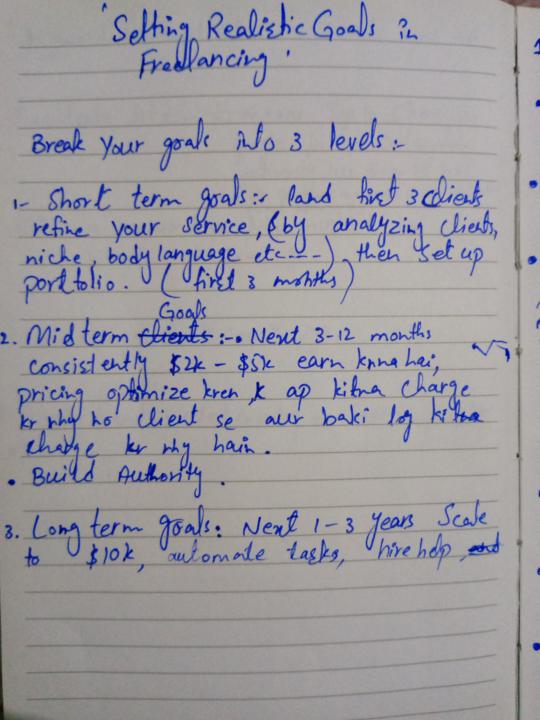 'Setting Realistic Goals in
Freelancing'
Break your goals into 3 levels :-
1- Short term goals :- land first 3 clients
refine your service, (by analyzing clients,
niche, body language etc ----), then set up
portfolio. (first 3 months)
Goals
2. Mid term clients :-. Next 3-12 months
consistently $2k - $5k earn krna hai,
pricing optimize kren, k ap kitna charge
kr rhy ho client se aur baki log kitna
charge kr rhy hain.
• Build Authority.
3. Long term goals: Next 1-3 years Scale
to $10k, automate tasks, hire help, and